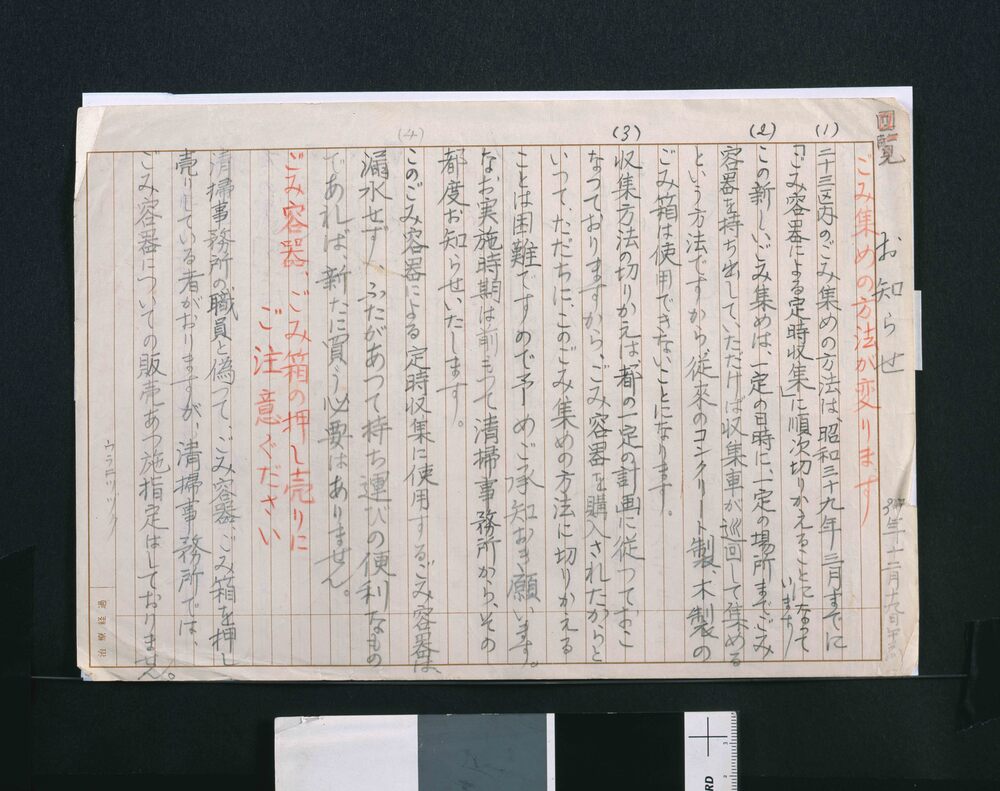 回覧
お知らせ
ごみ集めの方法が変ります
(1)
二十三区内のごみ集めの方法は、昭和三十九年三月までに
「ごみ容器による定時収集」に順次切りかえることになって
います
(2)
この新しいごみ集めは、一定の日時に、一定の場所までごみ
容器を持ち出していただけば収集車が巡回して集める
という方法ですから、従来のコンクリート製、木製の
ごみ箱は使用できないことになります。
(3)
収集方法の切りかえは、都の一定の計画に従つておこ
なつておりますから、ごみ容器を購入されたからと
いつて、ただちに、このごみ集めの方法に切りかえる
ことは困難ですので予めご承知おき願います。
なお実施時期は前もつて清掃事務所から、その
都度お知らせいたします。
(4)
このごみ容器による定時収集に使用するごみ容器は
漏水せず ふたがあつて持ち運びの便利なもの
であれば、新たに買う必要はありません。
ごみ容器、ごみ箱の押し売りに
ご注意ください
清掃事務所の職員と偽つて、ごみ容器、ごみ箱を押し
売りしている者がおりますが、清掃事務所では、
ごみ容器についての販売あつ施指定はしておりません。
ウラニツヅク
治療経過